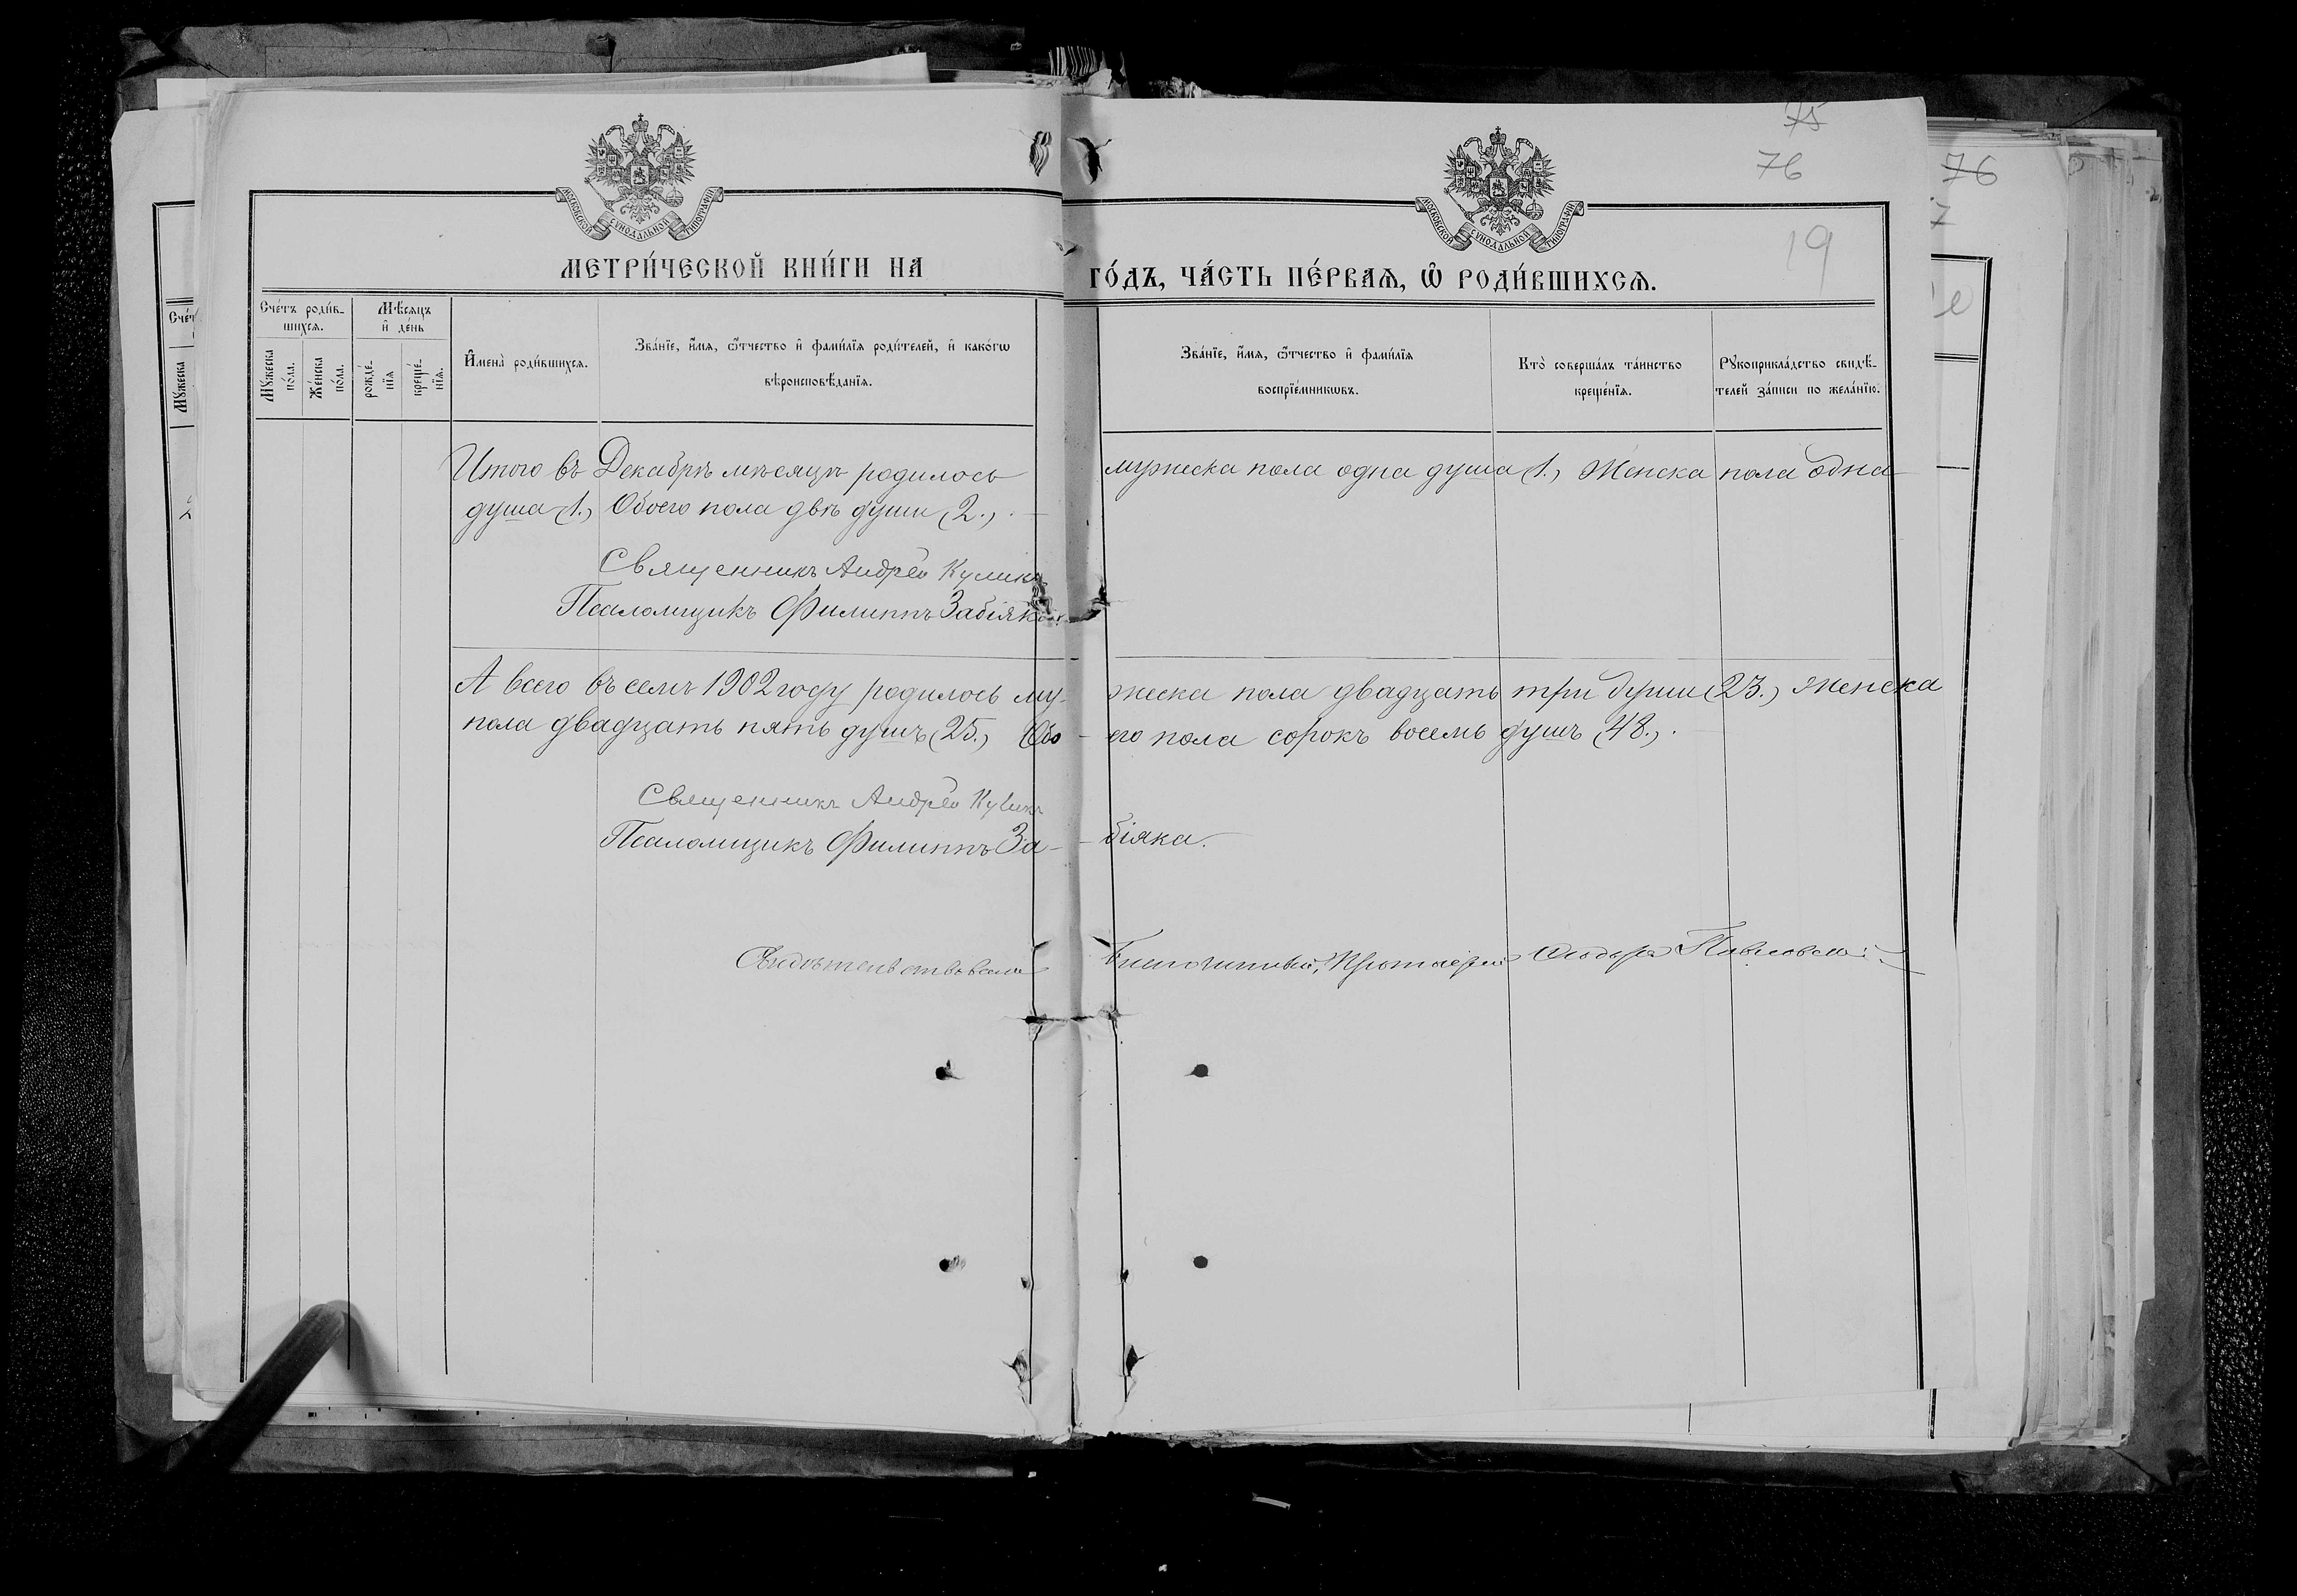 75
76
76
7
19
МОСКОВСКОЙ СѴНОДАЛЬНОЙ ТИПОГРАФІИ
МОСКОВСКОЙ СѴНОДАЛЬНОЙ ТИПОГРАФІИ
МЕТРИ́ЧЕСКОЙ КНИ́ГИ НА ГО́ДЪ, ЧА́СТЬ ПЕ́РВАѦ, Ѽ РОДИ́ВШИХСѦ.
Сче́тъ роди́в-
шихсѧ.
Мѣ́сѧцъ
и҆ де́нь
Мꙋ́жеска
по́ла.
Же́нска
по́ла.
рожде́-
нїѧ
креще́-
нїѧ.
И҆мена̀ роди́вшихсѧ.
Зва́нїе, и҆́мѧ, ѻ҆́тчество и҆ фами́лїѧ роди́телей, и҆ како́гѡ
вѣроисповѣ́данїѧ.
Зва́нїе, и҆́мѧ, ѻ҆́тчество и҆ фами́лїѧ
воспрїе́мникѡвъ.
Кто̀ соверша́лъ та́инство
креще́нїѧ.
Рꙋкоприкла́дство свидѣ́-
телей за́писи по жела́нїю.
Сче́т
Мꙋ́жеска
2
Итого въ Декабрѣ мѣсяцѣ родилось мужеска пола одна душа (1.) Женска пола одна
душа (1.) Обоего пола двѣ души (2.).
Священникъ Андрей Куликъ
Псаломщикъ Филиппъ Забіяка.
А всего въ семъ 1902 году родилось му- жеска пола двадцать три души (23.) Женска
пола двадцать пять душъ (25.) Обо - его пола сорокъ восемь душъ (48.).
Священникъ Андрей Куликъ
Псаломщикъ Филиппъ За- - біяка.
Свидѣтельствовалъ Благочинный, Протоіерей Ѳеодоръ Павловскій